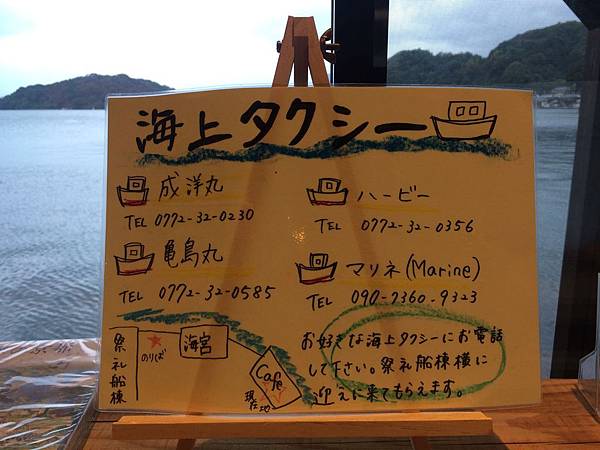 海上タクシー
成洋丸
TEL 0772-32-0230
ハービー
TEL 0772-32-0356
亀島丸
TEL 0772-32-0585
マリネ(Marine)
090-7360-9323
お好きな海上タクシーにお電話
して下さい。祭礼船棟横に
迎えに来てもらえます。
祭礼船棟
のりば
海宮
Cafe
現在地